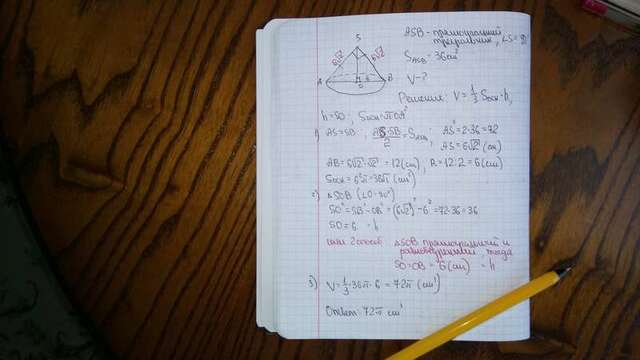 S
6√2
6√2
A
O
B
ASB - прямоугольный
треугольник, ∠S = 90°
S_ASB = 36 см²
V - ?
Решение: V = 1/3 Sосн · h,
h = SO; Sосн = πOA²
1) AS = SB; AS·SB/2 = S_ASB, AS² = 2·36 = 72
AS = 6√2 (см)
AB = 6√2·√2 = 12 (см), R = 12:2 = 6 (см)
Sосн = 6²π = 36π (см²)
2) △SOB (∠O = 90°)
SO² = SB² - OB² = (6√2)² - 6² = 72 - 36 = 36
SO = 6 = h
или 2 способ △SOB прямоугольный и
равнобедренный тогда
SO = OB = 6 (см) = h
3) V = 1/3 · 36π · 6 = 72π (см³)
Ответ: 72π см³